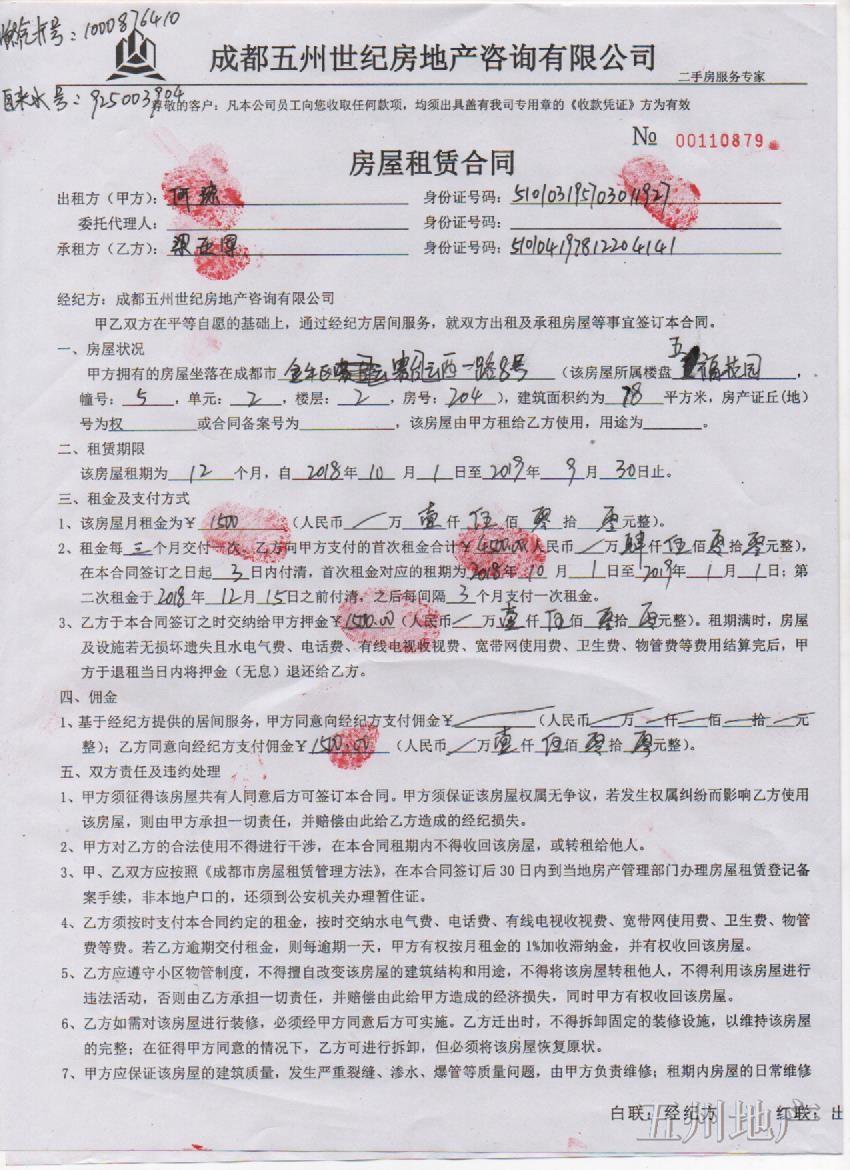 燃气卡号：1000876410
成都五州世纪房地产咨询有限公司
二手房服务专家
自来水号：925003904
尊敬的客户：凡本公司员工向您收取任何款项，均须出具盖有我司专用章的《收款凭证》方为有效
№ 00110879
房屋租赁合同
出租方（甲方）：何 身份证号码：510103195703011927
委托代理人： 身份证号码：
承租方（乙方）：梁亚军 身份证号码：510104197812204141
经纪方：成都五州世纪房地产咨询有限公司
甲乙双方在平等自愿的基础上，通过经纪方居间服务，就双方出租及承租房屋等事宜签订本合同。
一、房屋状况
甲方拥有的房屋坐落在成都市金牛区 西一路8号（该房屋所属楼盘五福花园，
幢号：5，单元：2，楼层：2，房号：204），建筑面积约为78平方米，房产证丘(地)
号为权 或合同备案号为 ，该房屋由甲方租给乙方使用，用途为 。
二、租赁期限
该房屋租期为12个月，自2018年10月1日至2019年9月30日止。
三、租金及支付方式
1、该房屋月租金为￥1500（人民币/万壹仟伍佰零拾零元整）。
2、租金每三个月交付一次，乙方向甲方支付的首次租金合计￥4500.00（人民币/万肆仟伍佰零拾零元整），
在本合同签订之日起3日内付清，首次租金对应的租期为2018年10月1日至2019年1月1日；第
二次租金于2018年12月15日之前付清，之后每间隔3个月支付一次租金。
3、乙方于本合同签订之时交纳给甲方押金￥1500.00（人民币/万壹仟伍佰零拾零元整）。租期满时，房屋
及设施若无损坏遗失且水电气费、电话费、有线电视收视费、宽带网使用费、卫生费、物管费等费用结算完后，甲
方于退租当日内将押金（无息）退还给乙方。
四、佣金
1、基于经纪方提供的居间服务，甲方同意向经纪方支付佣金￥ （人民币 万 仟 佰 拾 元
整）；乙方同意向经纪方支付佣金￥1500.00（人民币/万壹仟伍佰零拾零元整）。
五、双方责任及违约处理
1、甲方须征得该房屋共有人同意后方可签订本合同。甲方须保证该房屋权属无争议，若发生权属纠纷而影响乙方使用
该房屋，则由甲方承担一切责任，并赔偿由此给乙方造成的经纪损失。
2、甲方对乙方的合法使用不得进行干涉，在本合同租期内不得收回该房屋，或转租给他人。
3、甲、乙双方应按照《成都市房屋租赁管理方法》，在本合同签订后30日内到当地房产管理部门办理房屋租赁登记备
案手续，非本地户口的，还须到公安机关办理暂住证。
4、乙方须按时支付本合同约定的租金，按时交纳水电气费、电话费、有线电视收视费、宽带网使用费、卫生费、物管
费等费。若乙方逾期交付租金，则每逾期一天，甲方有权按月租金的1%加收滞纳金，并有权收回该房屋。
5、乙方应遵守小区物管制度，不得擅自改变该房屋的建筑结构和用途，不得将该房屋转租他人，不得利用该房屋进行
违法活动，否则由乙方承担一切责任，并赔偿由此给甲方造成的经济损失，同时甲方有权收回该房屋。
6、乙方如需对该房屋进行装修，必须经甲方同意后方可实施。乙方迁出时，不得拆卸固定的装修设施，以维持该房屋
的完整；在征得甲方同意的情况下，乙方可进行拆卸，但必须将该房屋恢复原状。
7、甲方应保证该房屋的建筑质量，发生严重裂缝、渗水、爆管等质量问题，由甲方负责维修；租期内房屋的日常维修
白联：经纪方 红联：出
五州地产